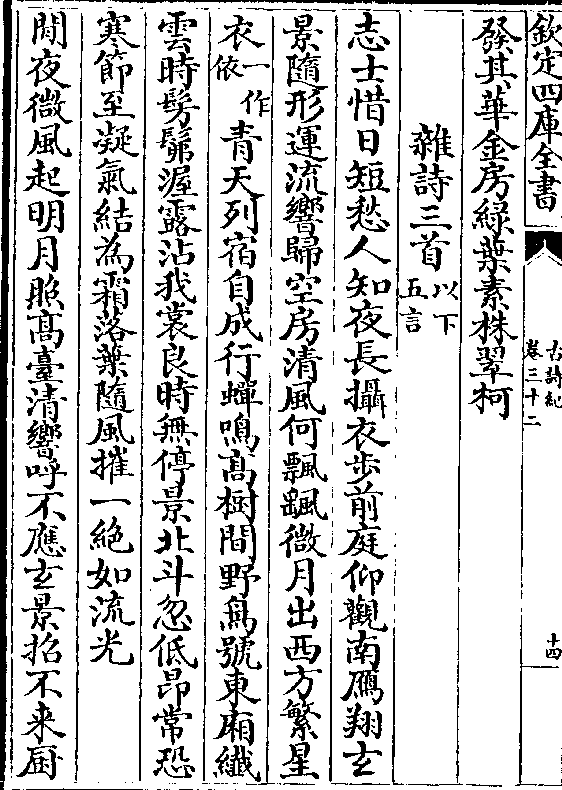 欽定四庫全書
古詩紀
卷三十二
十四
發其華金房綠葉素株翠柯
雜詩三首以下五言
志士惜日短愁人知夜長攝衣步前庭仰觀南鴈翔玄
景隨形運流響歸空房清風何飄颻微月出西方繁星
衣一作依青天列宿自成行蟬鳴髙樹間野鳥號東廂纎
雲時髣髴渥露沾我裳良時無停景北斗忽低昂常恐
寒節至凝氣結為霜落葉隨風摧一絶如流光
閒夜微風起明月照髙臺清響呼不應玄景招不来厨